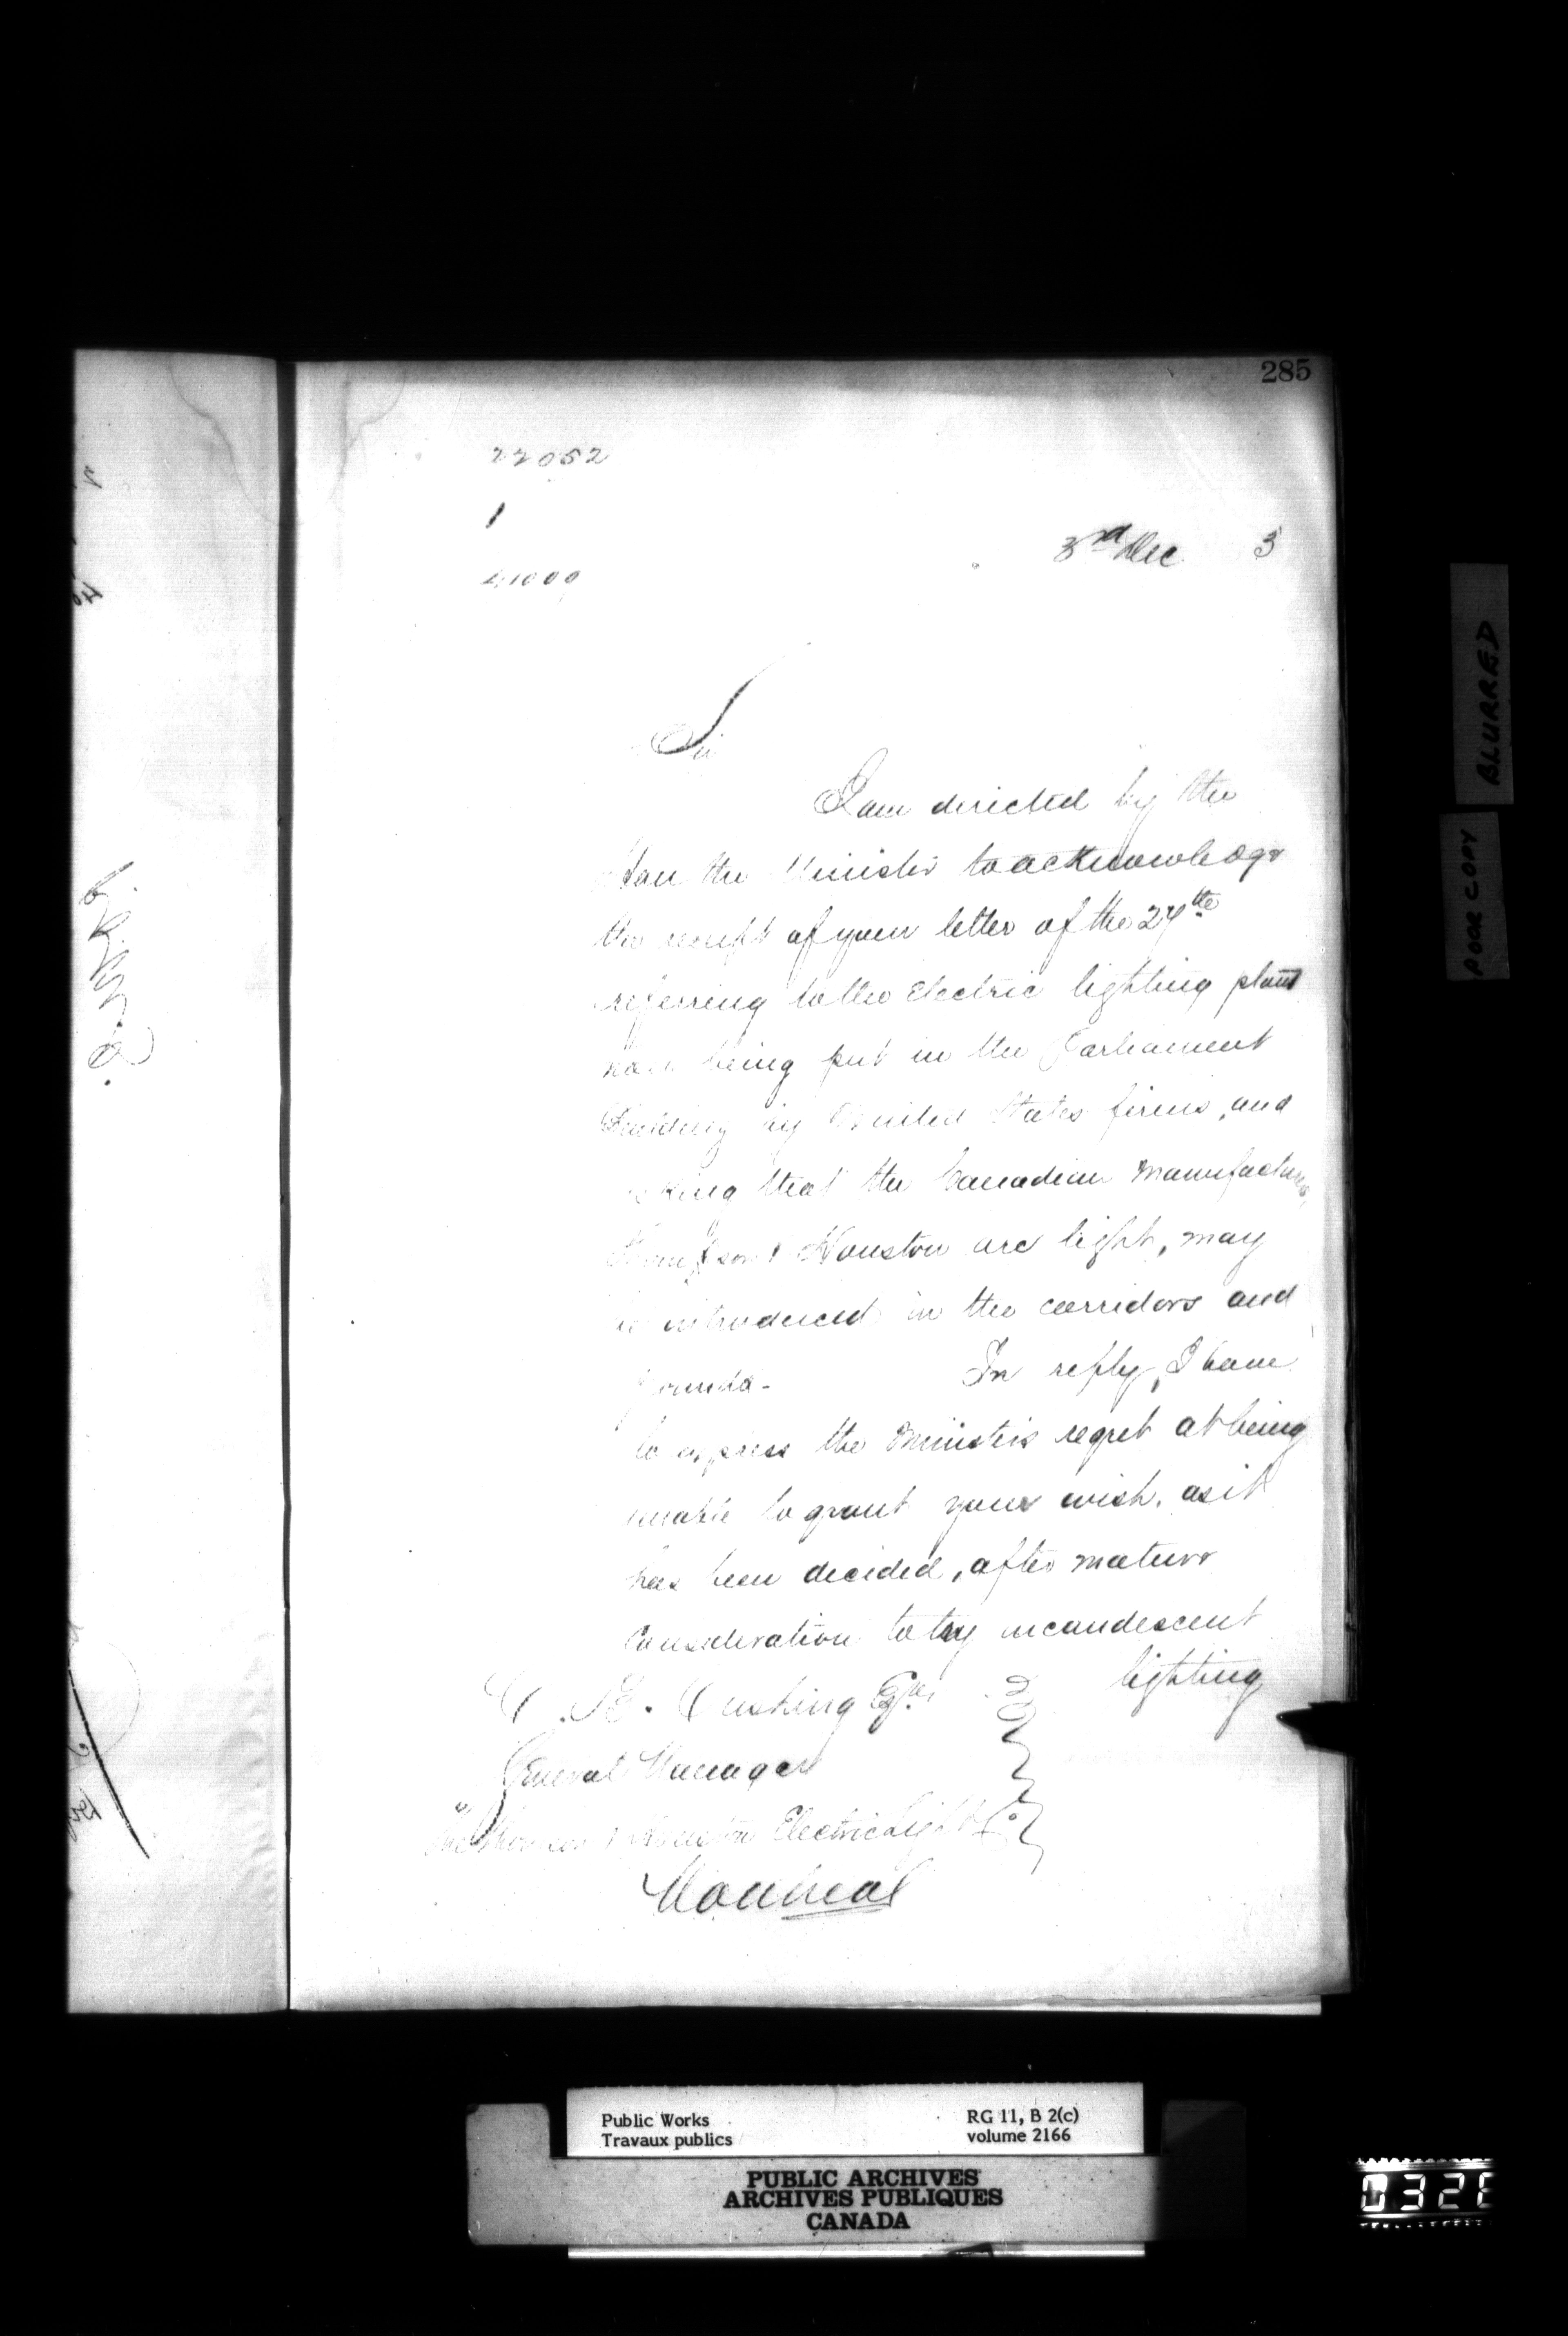 285
22052
1
41000
3rd Dec 3
Sir
I am directed by the
Hon the Minister to acknowledge
the receipt of your letter of the 27th
referring to the Electric lighting plant
now being put in the Parliament
Building by United States firms, and
asking that the Canadian Manufacture,
Thompson & Houston arc light, may
be introduced in the corridors and
grounds -
In reply, I have
to express the Minister's regret at being
unable to grant your wish, as it
has been decided, after mature
consideration to try incandescent
lighting
C. E. Cushing Esqre
General Manager
The Thomson & Houston Electric Light Co
Montreal
BLURRED
POOR COPY
Public Works
Travaux publics
RG 11, B 2(c)
volume 2166
PUBLIC ARCHIVES
ARCHIVES PUBLIQUES
CANADA